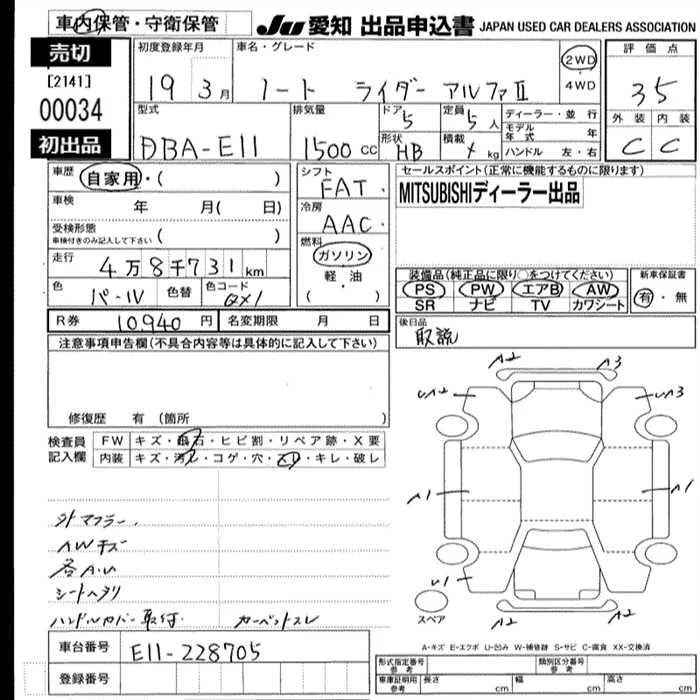 車内保管・守衛保管
JU 愛知 出品申込書 JAPAN USED CAR DEALERS ASSOCIATION
売切
[2141]
00034
初出品
初度登録年月
19 3月
車名・グレード
ノート ライダー アルファII
2WD
4WD
評価点
35
外装 内装
C C
型式
DBA-E11
排気量
1500 cc
ドア 5
形状 HB
定員 5人
積載 kg
ディーラー・並行
モデル年式 年
ハンドル 左・右
車歴
自家用・( )
車検 年 月( 日)
受検形態
車検付きのみ記入して下さい ( )
走行
4万8千731km
色 パール 色替 色コード QX1
シフト
FAT
冷房
AAC
燃料
ガソリン
軽・油
( )
セールスポイント(正常に機能するものに限ります)
MITSUBISHIディーラー出品
装備品(純正品に限り○をつけてください)
PS PW エアB AW
SR ナビ TV カワシート
新車保証書
有・無
R券 10,940円 名変期限 月 日
後日品
取説
注意事項申告欄(不具合内容等は具体的に記入して下さい)
修復歴 有(箇所 )
検査員記入欄
FW キズ・飛石・ヒビ割・リペア跡・X要
内装 キズ・汚れ・コゲ・穴・スリ・キレ・破レ
外マフラー.
AWキズ
各A.U
シートヘタリ
ハンドルカバー取付 カーペットスレ
A2 A3
UA2 UA3
A1 A1
U1
A2 A2
スペア
A-キズ E-エクボ U-凹み W-補修跡 S-サビ C-腐食 XX-交換済
車台番号 E11-228705
登録番号
形式指定番号 類別区分番号
車庫証明用参考 長さ cm 幅 cm 高さ cm